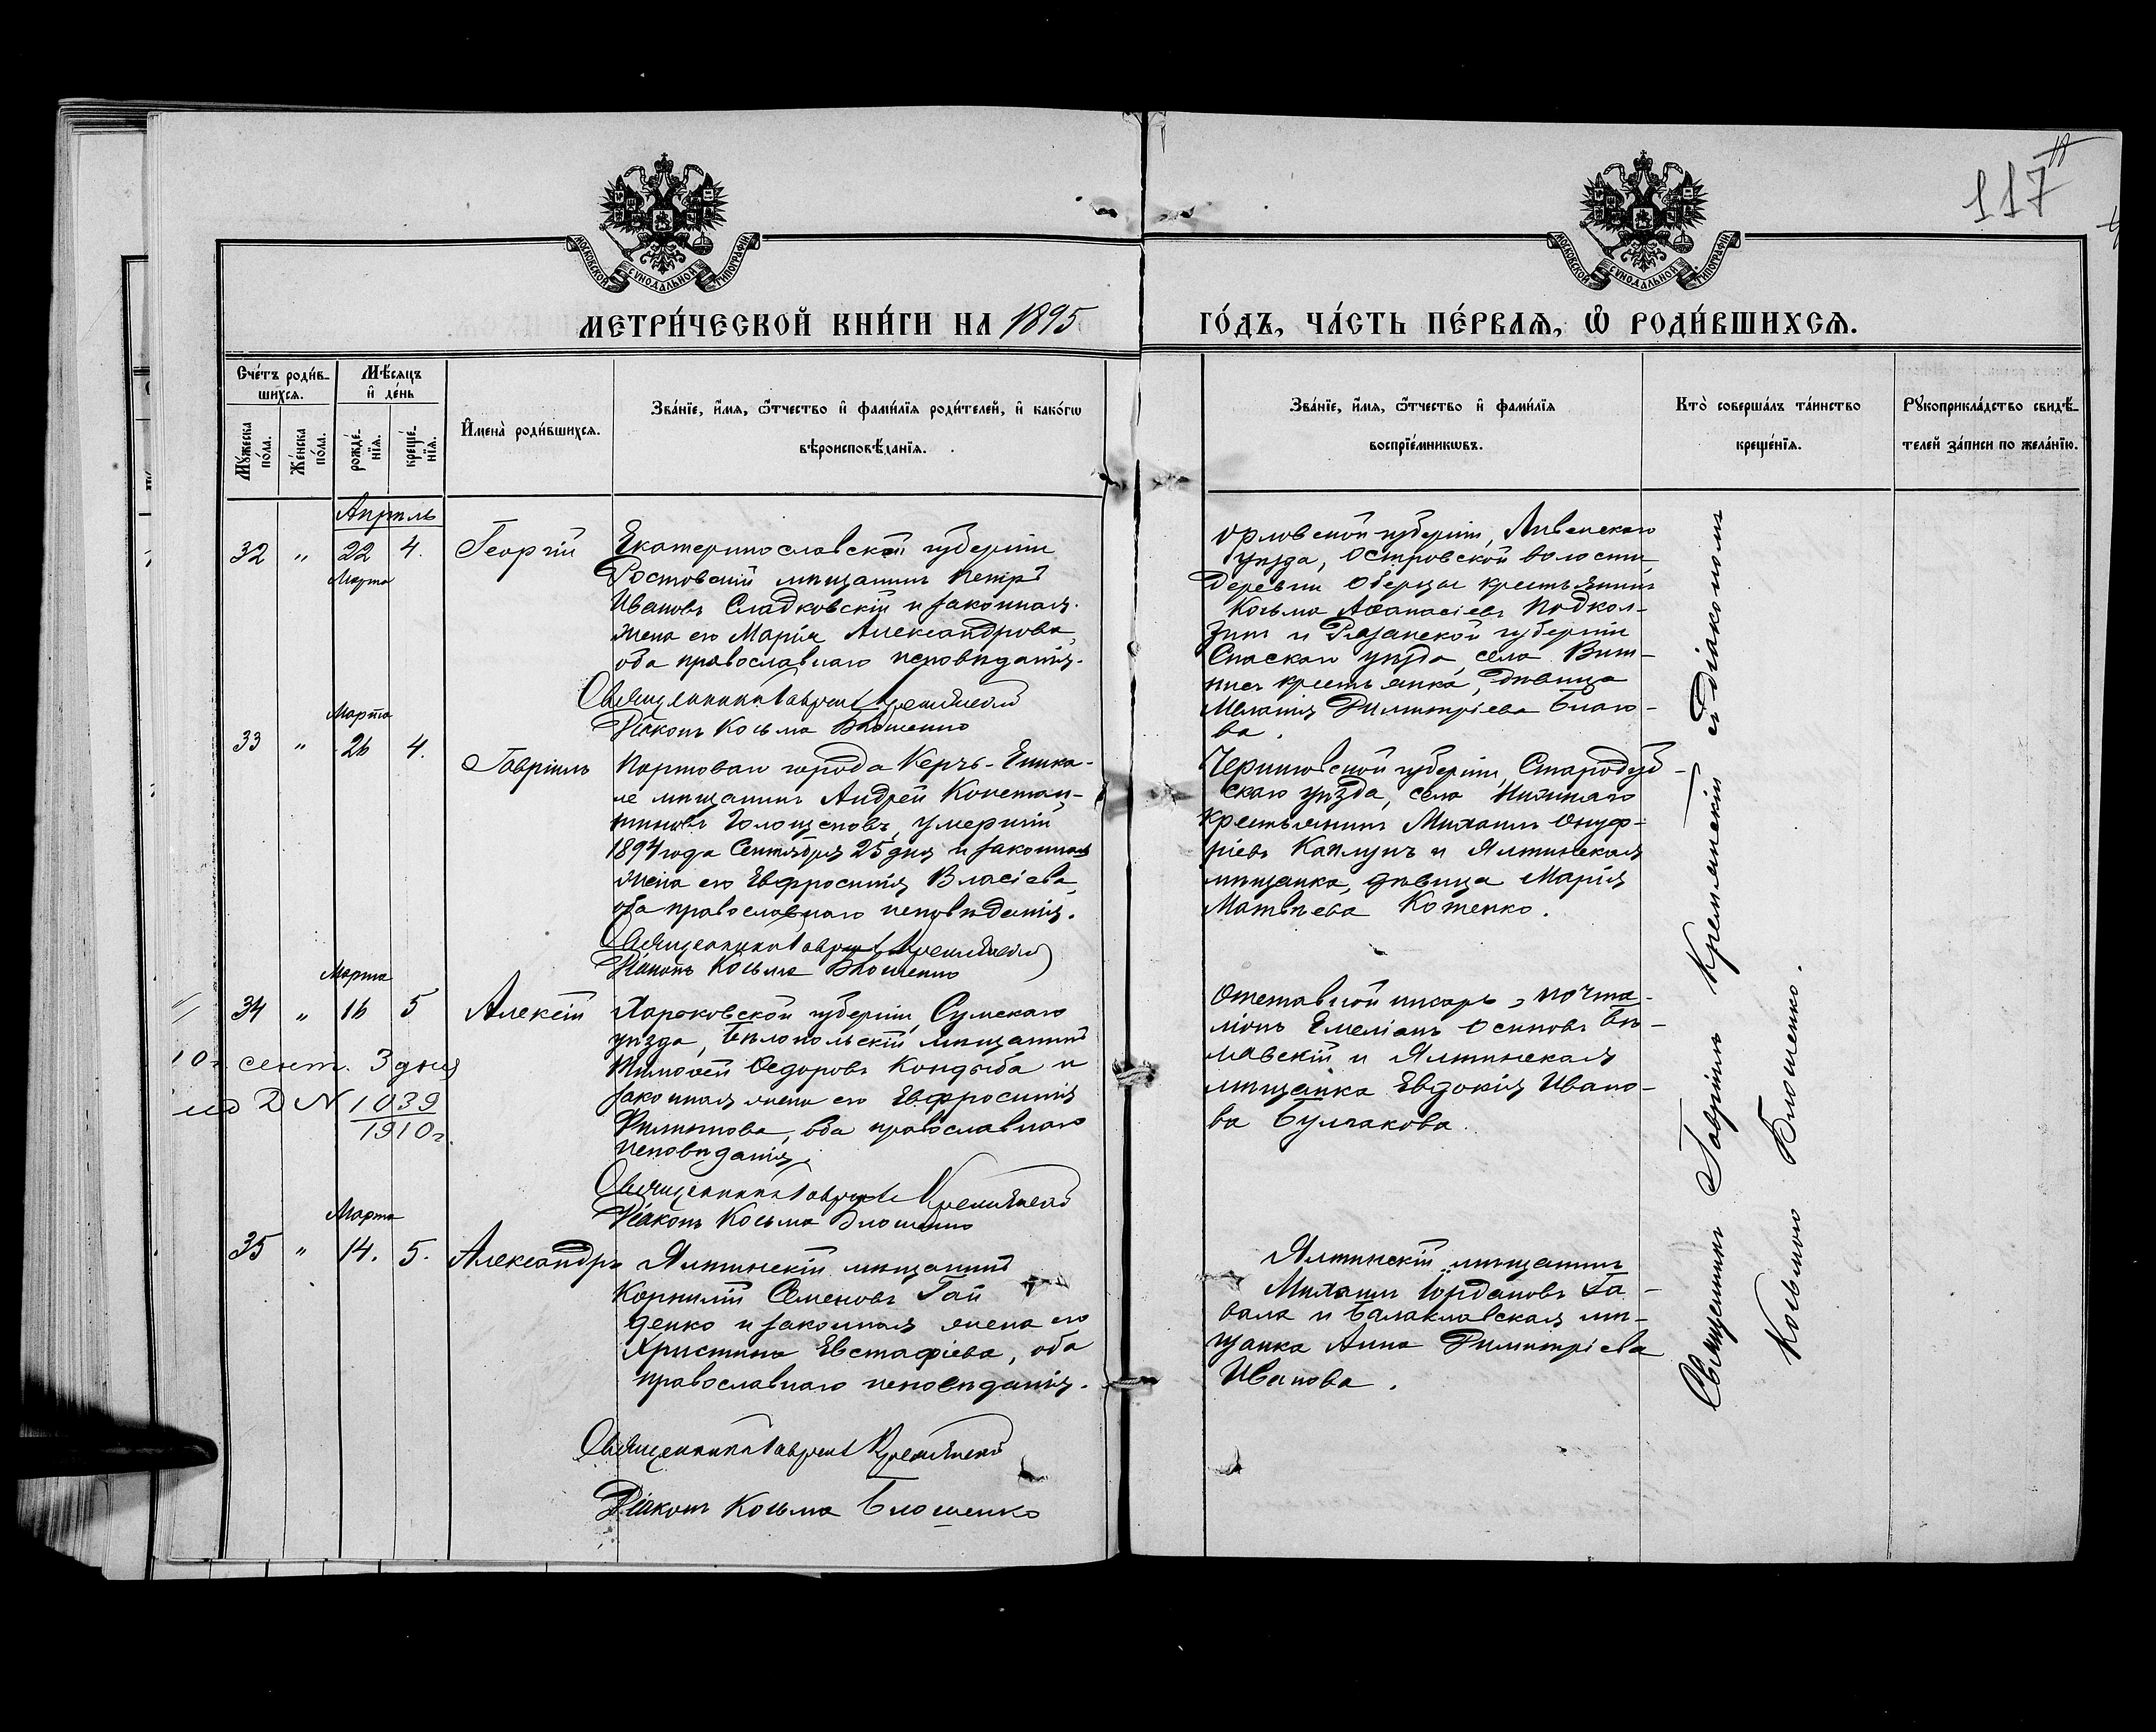 117
МОСКОВСКОЙ СѴНОДАЛЬНОЙ ТИПОГРАФІИ
МОСКОВСКОЙ СѴНОДАЛЬНОЙ ТИПОГРАФІИ
МЕТРИ́ЧЕСКОЙ КНИ́ГИ НА 1895
ГО́ДЪ, ЧА́СТЬ ПЕ́РВАѦ, Ѽ РОДИ́ВШИХСѦ.
Сче́тъ роди́в-
шихсѧ.
Мѣ́сѧцъ
и҆ де́нь
Мꙋ́жеска
по́ла.
Же́нска
по́ла.
рожде́-
нїѧ.
креще́-
нїѧ.
И҆мена̀ роди́вшихсѧ.
Зва́нїе, и҆́мѧ, ѻ҆́тчество и҆ фами́лїѧ роди́телей, и҆ како́гѡ
вѣроисповѣ́данїѧ.
Зва́нїе, и҆́мѧ, ѻ҆́тчество и҆ фами́лїѧ
воспрїе́мникѡвъ.
Кто̀ соверша́лъ та́инство
креще́нїѧ.
Рꙋкоприкла́дство свидѣ́-
телей за́писи по жела́нїю.
Апрѣль
32 " 22 4. Георгій
Марта
Екатеринославской губерніи
Ростовскій мѣщанинъ Петръ
Ивановъ Сладковскій и законная
жена его Марія Александрова,
оба православнаго исповѣданія.
Священникъ Гавріилъ Кремянскій
Діаконъ Косьма Блошенко
Орловской губерніи, Ливенскаго
уѣзда, Островской волости,
деревни Оберца крестьянинъ
Косьма Аѳанасіевъ Подкол-
зинъ и Рязанской губерніи
Спаскаго уѣзда, села
крестьянка, дѣвица
Меланія Димитріева Благо-
ва.
Марта
33 " 26 4. Гавріилъ
Портоваго города Керчь-Еника-
ле мѣщанинъ Андрей Констан-
тиновъ Голощеповъ, умершій
1894 года Сентября 25 дня и законная
жена его Евфросинія Власіева,
оба православнаго исповѣданія.
Священникъ Гавріилъ Кремянскій
Діаконъ Косьма Блошенко
Черниговской губерніи, Стародуб-
скаго уѣзда, села
крестьянинъ Михаилъ Онуф-
ріевъ Каплунъ и Ялтинская
мѣщанка, дѣвица Марія
Матвѣева Котенко.
Марта
34 " 16 5 Алексій
10 г. сент. 3 дня
D N 1039
1910 г.
Харьковской губерніи, Сумскаго
уѣзда, Бѣлопольскій мѣщанинъ
Тимоѳей Ѳедоровъ Кондыба и
законная жена его Евфросинія
Филиппова, оба православнаго
исповѣданія.
Священникъ Гавріилъ Кремянскій
Діаконъ Косьма Блошенко
Отставной писарь, почта-
ліонъ Емеліанъ Осиповъ Вѣ-
лавскій и Ялтинская
мѣщанка Евдокія Ивано-
ва Булгакова.
Марта
35 " 14. 5. Александръ
Ялтинскій мѣщанинъ
Корнилій Семеновъ Гай
денко и законная жена его
Христина Евстафіева, оба
православнаго исповѣданія.
Священникъ Гавріилъ Кремянскій
Діаконъ Косьма Блошенко
Ялтинскій мѣщанинъ
Михаилъ Іордановъ Га-
вала и Балаклавская мѣ-
щанка Анна Димитріева
Иванова.
Священникъ Гавріилъ Кремянскій съ Діакономъ
Косьмою Блошенко.